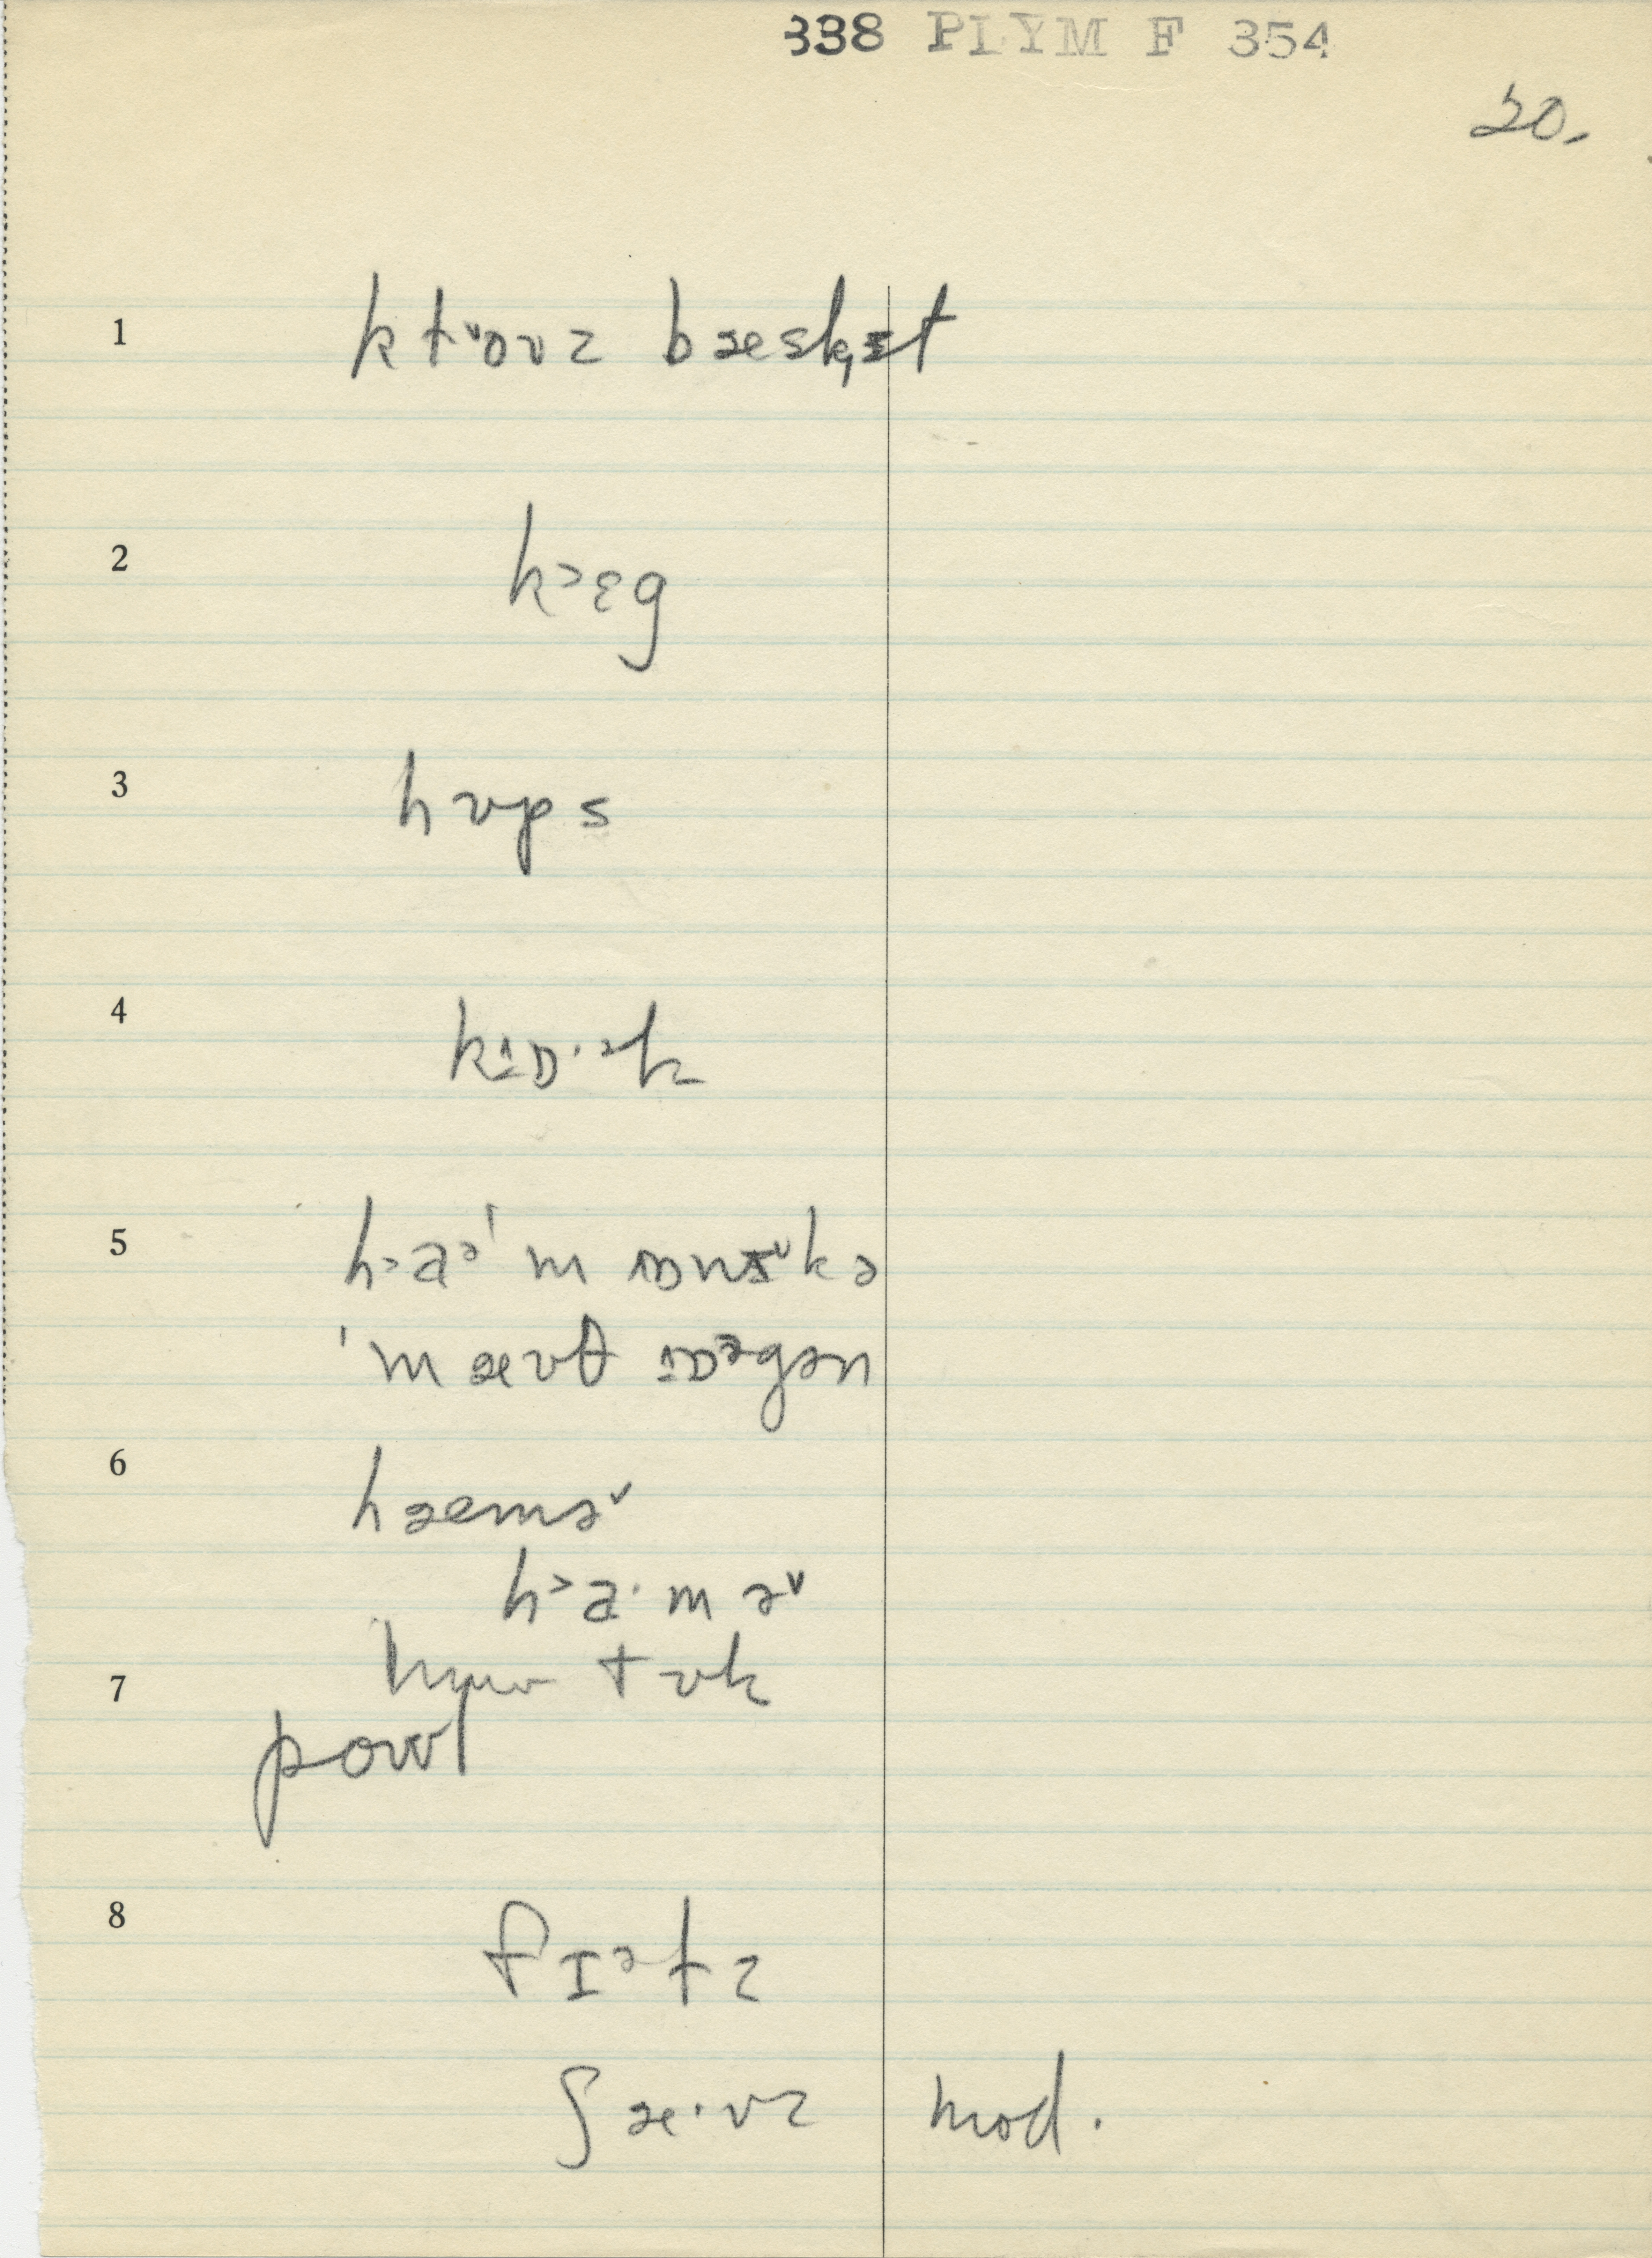 338 PLYM F 354
20.
1 klˇoʊz bæskɪt
2 k>ɛg
3 hʊps
4 kɪɒ·ək
5 h>aə'm ɒnɪˇkə
'mæʊθ ɒᵊgən
6 hæməˇ
h>a·məˇ
7 tʊk
powl
8 fɪəlz
ʃæ·vz mod.